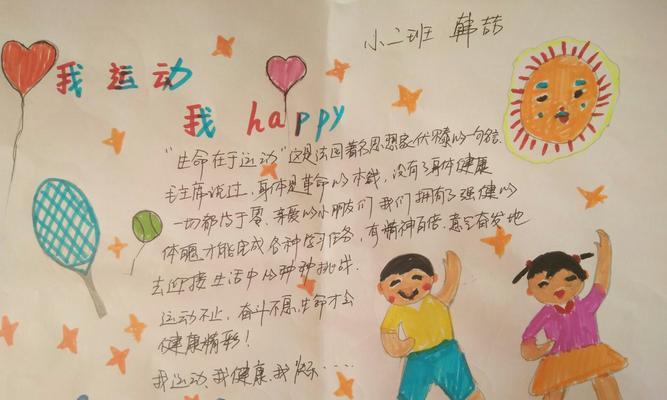 小二班 韩喆
我运动
我happy
"生命在于运动"这是法国著名思想家伏尔泰的一句名言.
毛主席说过,身体是革命的本钱,没有了身体健康
一切都等于零.亲爱的小朋友们我们拥有了强健的
体魄,才能完成各种学习任务,有精神百倍.意气奋发地
去迎接生活中的种种挑战.
运动不止,奋斗不息,生命才会
健康精彩!
我运动、我健康、我快乐……